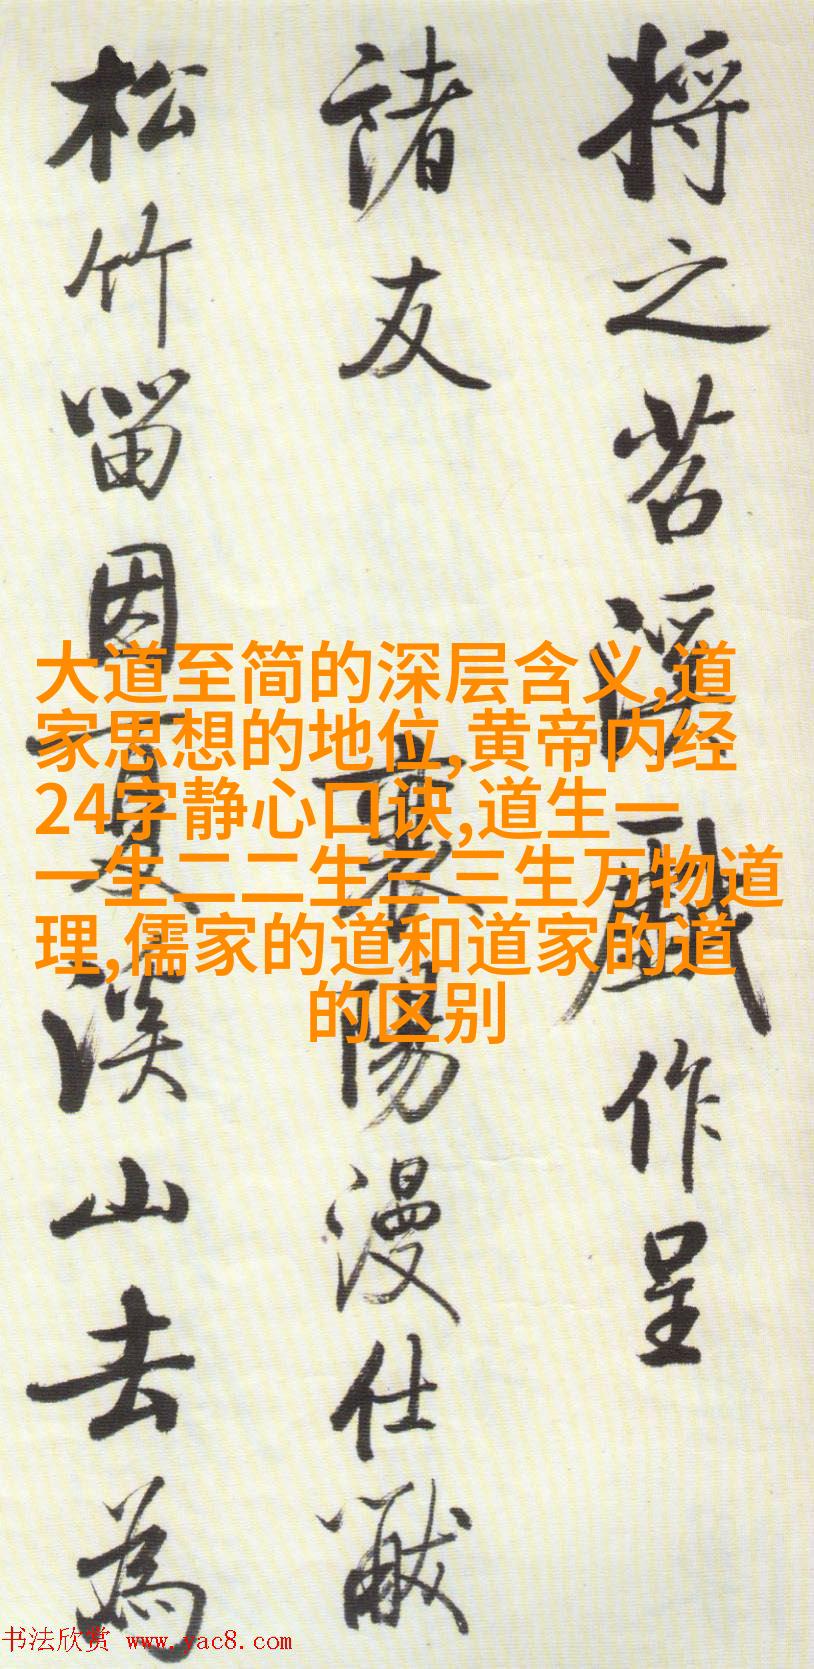 将之苕溪戲作呈
諸友 襄陽漫仕黻
松竹留因夏溪山去為
大道至简的深层含义,道
家思想的地位,黄帝内经
24字静心口诀,道生一
一生二二生三三生万物道
理,儒家的道和道家的道
的区别
书法欣赏 www.yac8.com